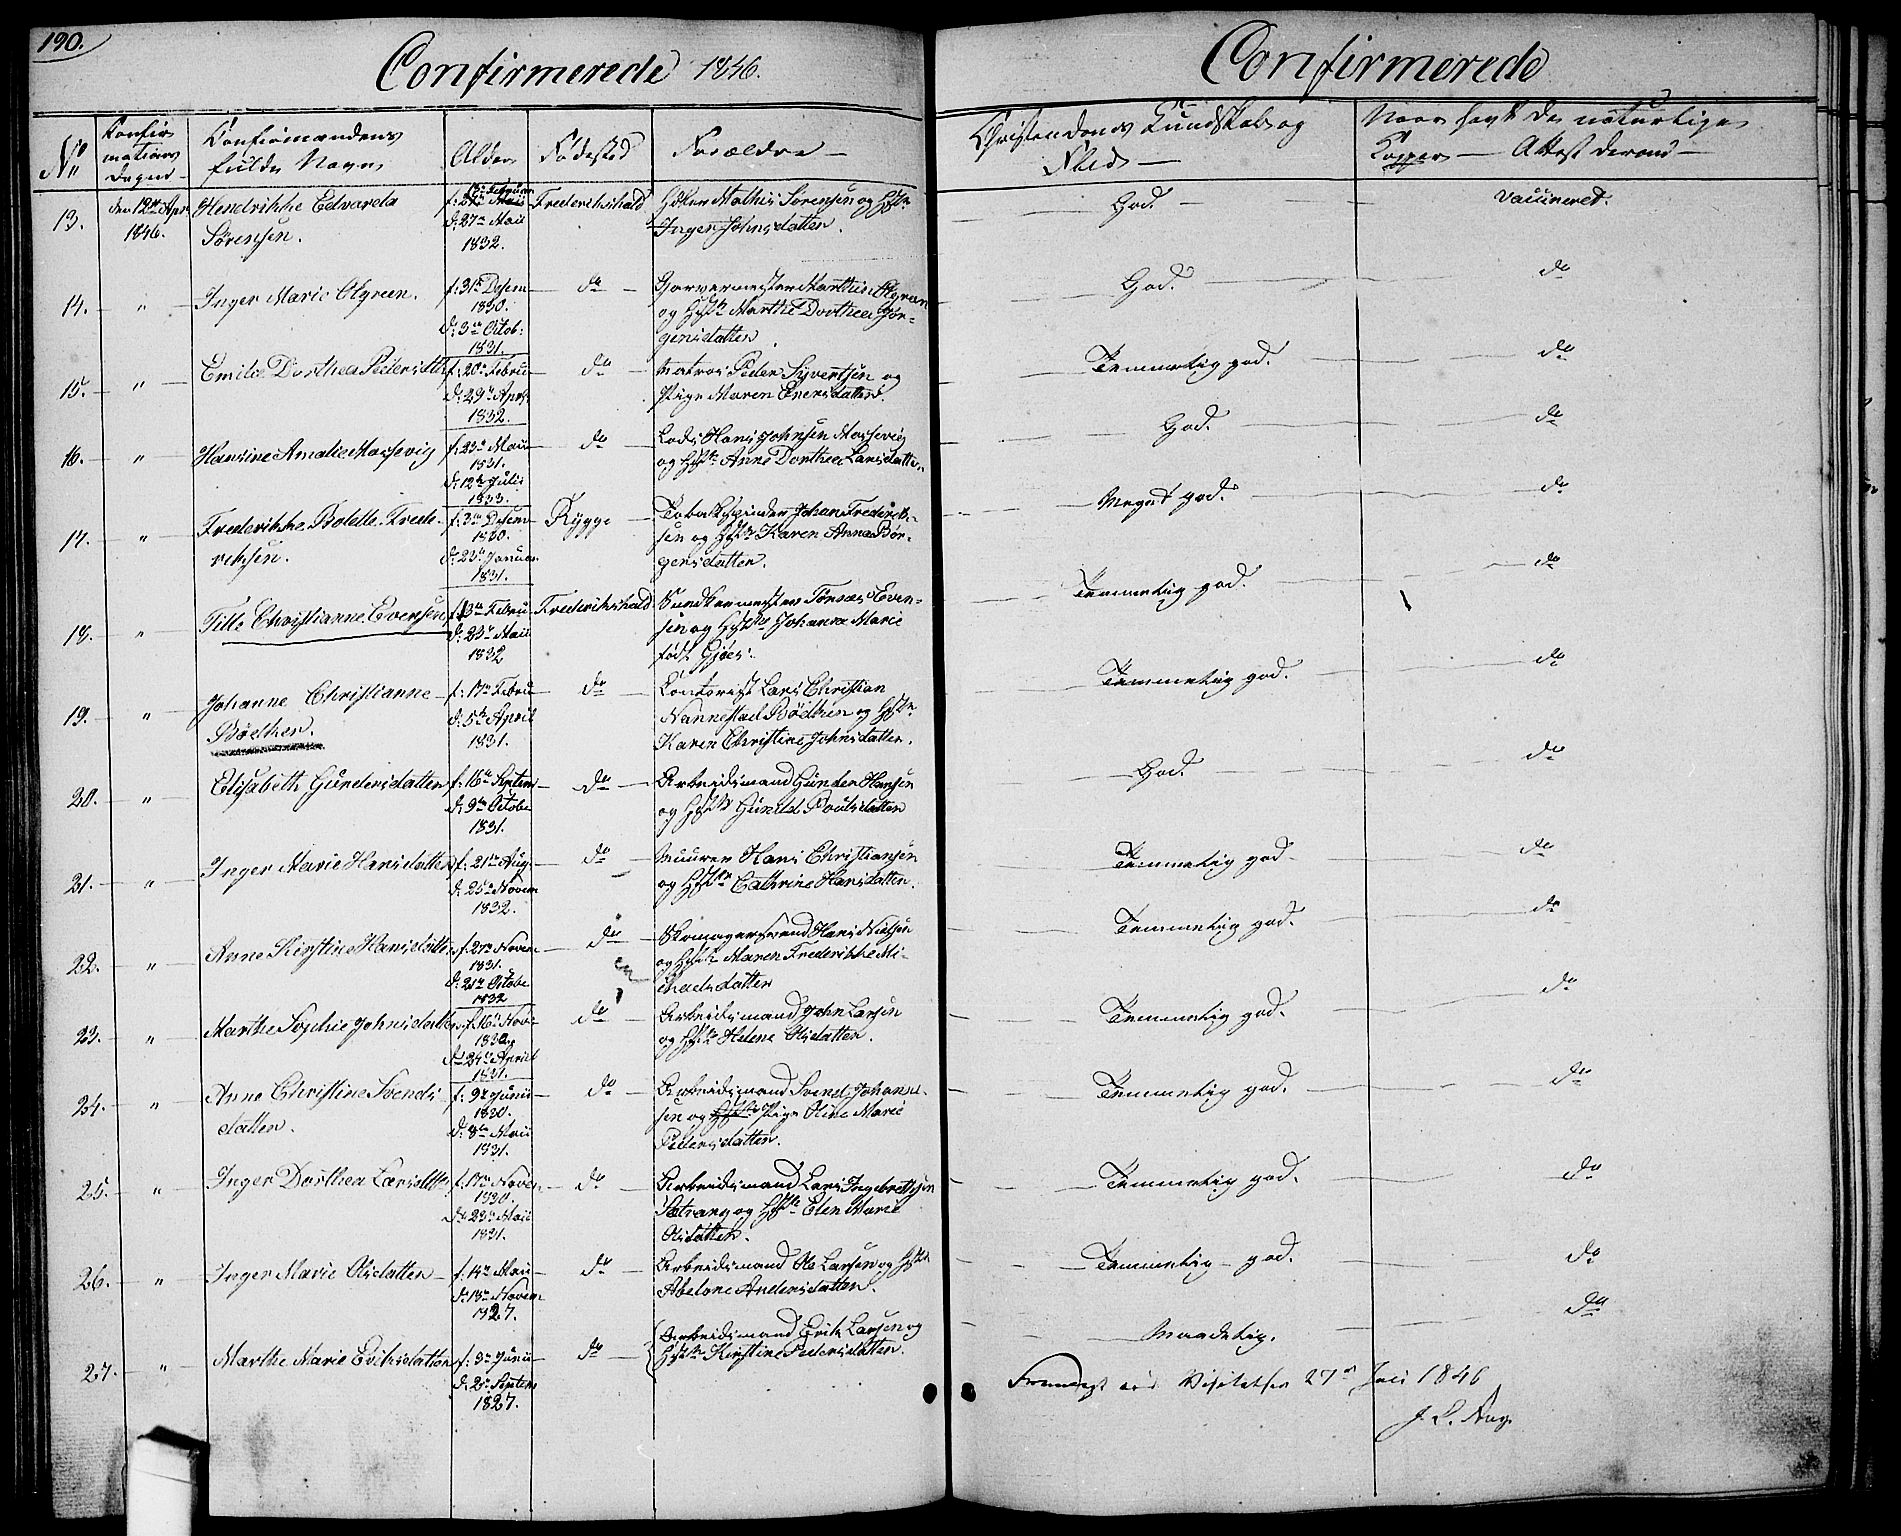 190.
Confirmerede 1846.
Confirmerede
No
Confir
mations
Dagen
Confirmandens
fulde Navn
Alder
Fødested
Forældre
Christendoms Kundskab og
Flid
Naar havt de naturlige
Kopper — Attest derom
13.
den 12te Apr.
1846.
Hendrikke Edvarda
Sørensen.
f: 13de Februar
d: 27de Maii
1832.
Frederikshald
Mathis Sørensen og Hst.
Inger Johnsdatter.
God
vaccineret.
14.
"
Inger Marie Elgreen.
f: 31te Desem
1830.
d: 3die Octob:
1831.
do
Garvermester Matthis Elgreen
og Hst. Marthe Dorthea Jør-
gensdatter.
God.
do
15.
"
Emilie Dorthea Pedersdtr
f: 20de Febru
d: 29de Apr.
1832.
do
Matros Peder Syvertsen og
Pige Maren Enersdatter.
Temmelig god.
do
16.
"
Hansine Amalie Mossevig
f: 23de Maii
1831.
d: 12te Julii
1833.
do
Lods Hans Johnsen Mossevig
og Hst. Anne Dorthea Larsdatter.
God.
do
17.
"
Frederikke Bolette Frede-
riksen.
f: 3die Desem
1830.
d: 23de Januar
1831.
Rygge
Tobakspinder Johan Frederik-
sen og Hst. Karen Anna Bør-
gersdatter.
Meget god.
do
18.
"
Tille Christianne Evensen
f: 13de Febru
d: 23de Maii
1832
Frederikshald
Even-
sen og Hst. Johanna Marie
født Gjøes:
Temmelig god.
do
19.
"
Johanne Christianne
Bödtker.
f: 17de Febru
d: 5te April
1831.
do
Contorist Lars Christian
Nannestad Bödtker og Hst.
Karen Christine Johnsdatter.
Temmelig god.
do
20.
"
Elisabeth Gundersdatter
f: 16de Septem
d: 9de Octobr
1831.
do
Arbeidsmand Gunder Hansen
og Hst. Gunild Poulsdatter
God.
do
21.
"
Inger Marie Hansdatter
f: 21de Aug.
d: 25de Novem
1832.
do
Muurer Hans Christiansen
og Hst. Cathrine Hansdatter.
Temmelig god
do
22.
"
Anne Kirstine Hansdatter
f: 27de Novem
1831.
d: 21de Octobr
1832
do
Skomagersvend Hans Nielsen
og Hst. Maren Frederikke Mi-
chaelsdatter
Temmelig god.
do
23.
"
Marthe Sophie Johnsdatter
f: 16de Nove
1830
d: 24de April
1831.
do
Arbeidsmand John Larsen
og Hst. Helene Olsdatter.
Temmelig god.
do
24.
"
Anne Christine Svends-
datter.
f: 9de Junii
1830.
d: 8de Maii
1831.
do
Arbeidsmand Svend Johan-
sen og Hst. Pige Oline Marie
Pedersdatter.
Temmelig god.
do
25.
"
Inger Dorthea Larsdtr
f: 17de Novem
1830.
d: 23de Maii
1831.
do
Arbeidsmand Lars Ingebretsen
Sætrang og Hst. Elen Marie
Olsdatter.
Temmelig god.
do
26.
"
Inger Marie Olsdatter
f: 14de Maii
d: 18de Novem
1827.
do
Arbeidsmand Ole Larsen og Hst.
Abelone Andersdatter.
Temmelig god.
do
27.
"
Marthe Marie Eriksdatter
f: 3die Junii
d: 2den Septem
1827.
do
Arbeidsmand Erik Larsen og
Hst. Kirstine Pedersdatter.
Maadelig.
do
Fremlagt ved Visitatsen 27de Juli 1846